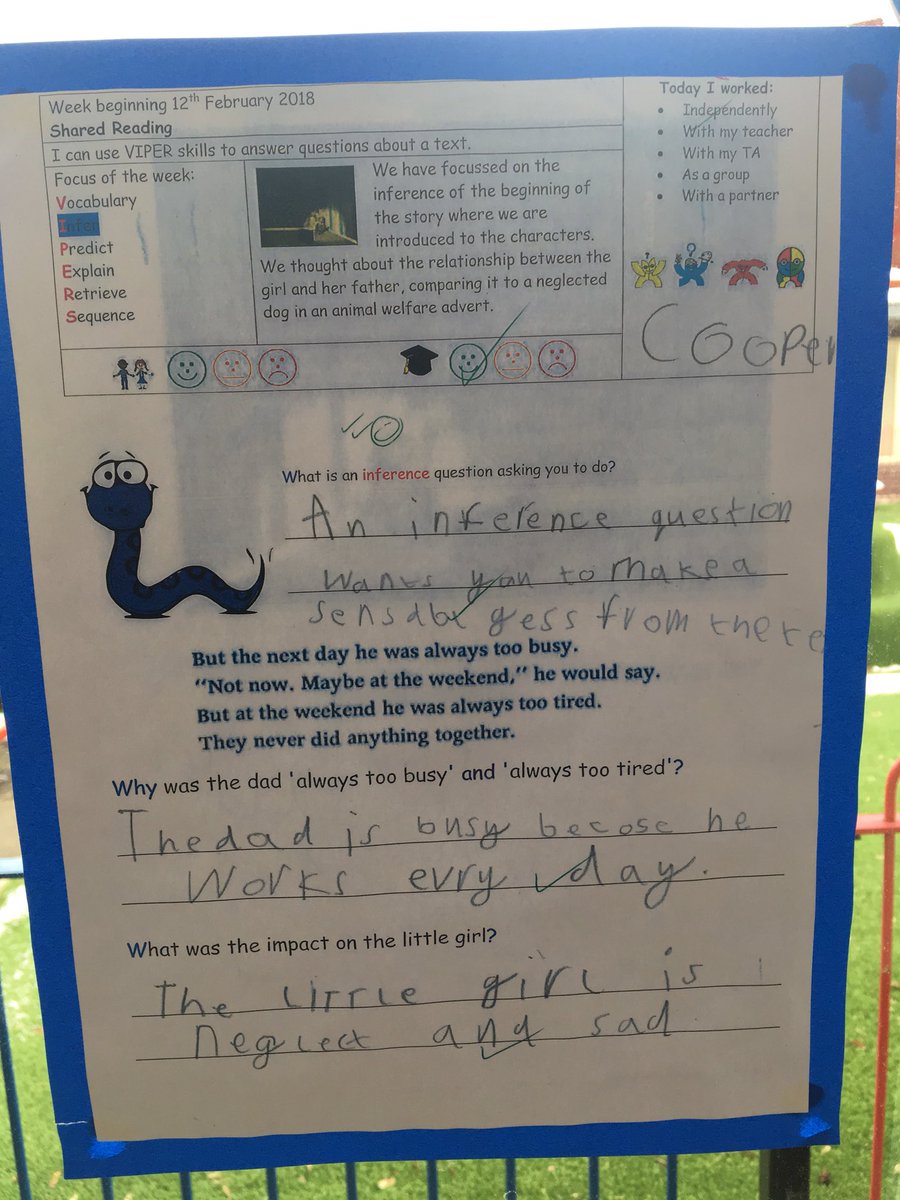 Week beginning 12th February 2018
Shared Reading
I can use VIPER skills to answer questions about a text.
Focus of the week:
Vocabulary
Infer
Predict
Explain
Retrieve
Sequence
We have focussed on the
inference of the beginning of
the story where we are
introduced to the characters.
We thought about the relationship between the
girl and her father, comparing it to a neglected
dog in an animal welfare advert.
Today I worked:
• Independently
• With my teacher
• With my TA
• As a group
• With a partner
Cooper
What is an inference question asking you to do?
An inference question
wants you to make a
sensabl gess from there
But the next day he was always too busy.
“Not now. Maybe at the weekend,” he would say.
But at the weekend he was always too tired.
They never did anything together.
Why was the dad 'always too busy' and 'always too tired'?
The dad is busy becose he
works evry day.
What was the impact on the little girl?
The little girl is
neglect and sad